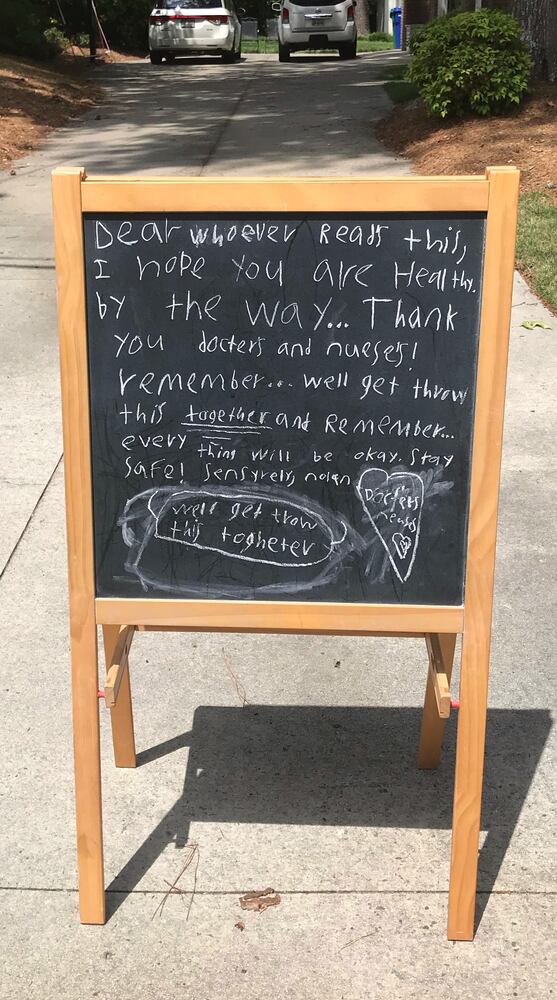 Dear whoever Reads this,
I hope You are Healthy.
by the way... Thank
you docters and nueses!
remember... well get throw
this together and Remember...
every thing will be okay. Stay
safe! Sensyrely, nolan
Docters
nueses
well get trow
this togheter